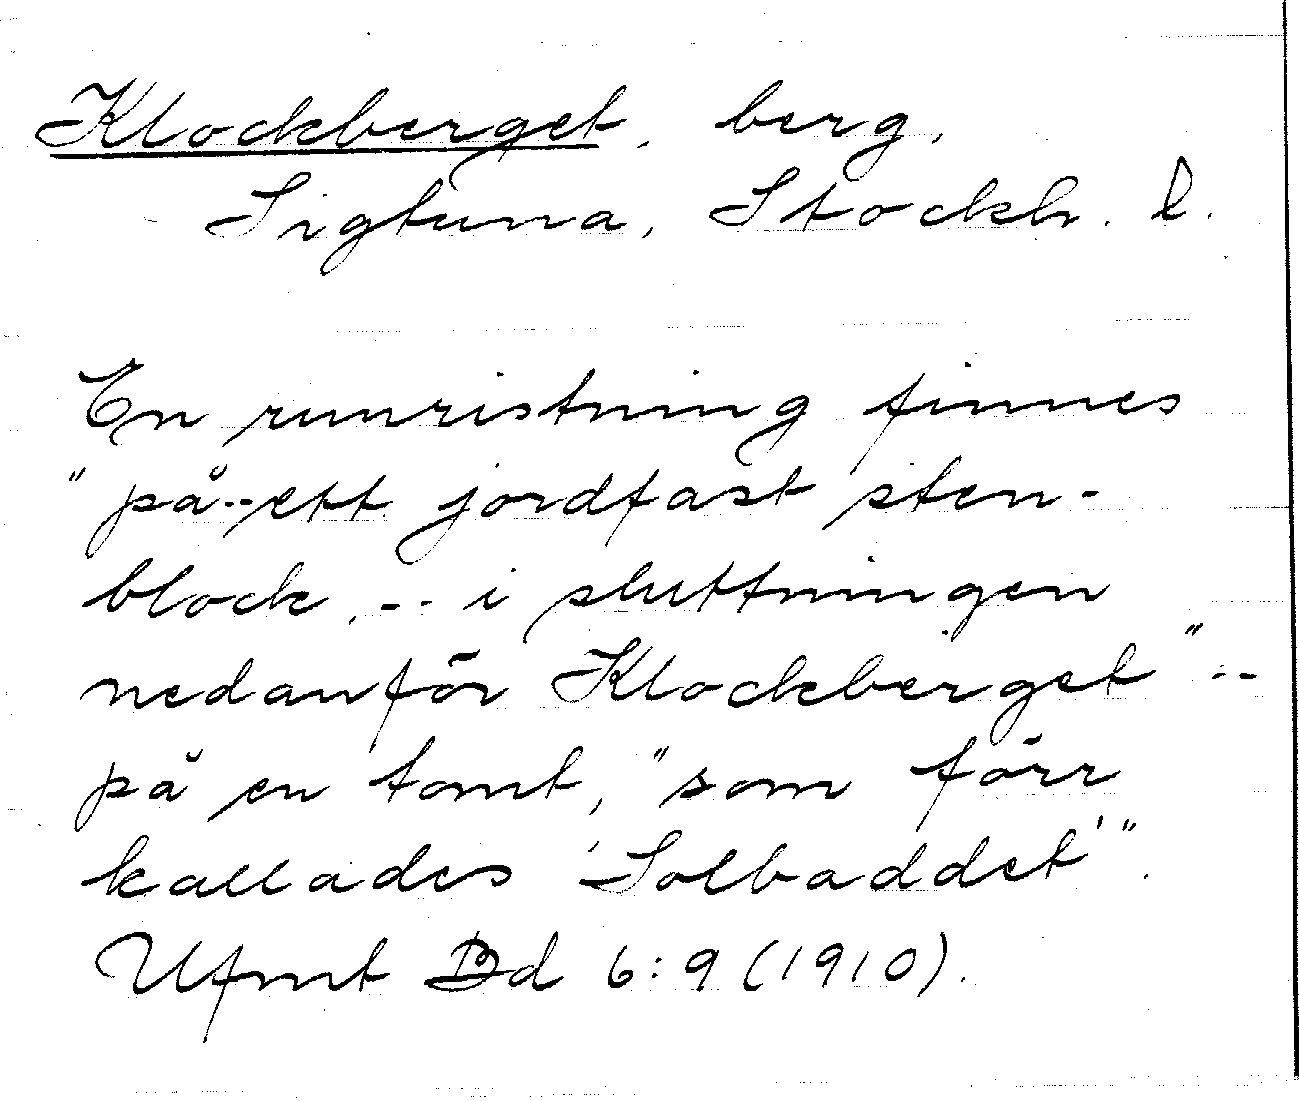 Klockberget, berg,
Sigtuna, Stockh. l.
En runristning finnes
"på -- ett jordfast sten-
block, -- i sluttningen
nedanför Klockberget" --
på en tomt, "som förr
kallades 'Solbaddet'".
Ufmt Bd 6:9 (1910).